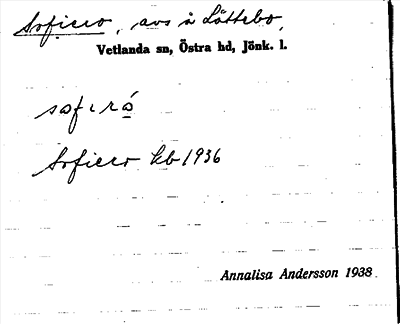 Sofiero, avs å Löttebo,
Vetlanda sn, Östra hd, Jönk. l.
sof ɩ ró
Sofiero kb 1936
Annalisa Andersson 1938.